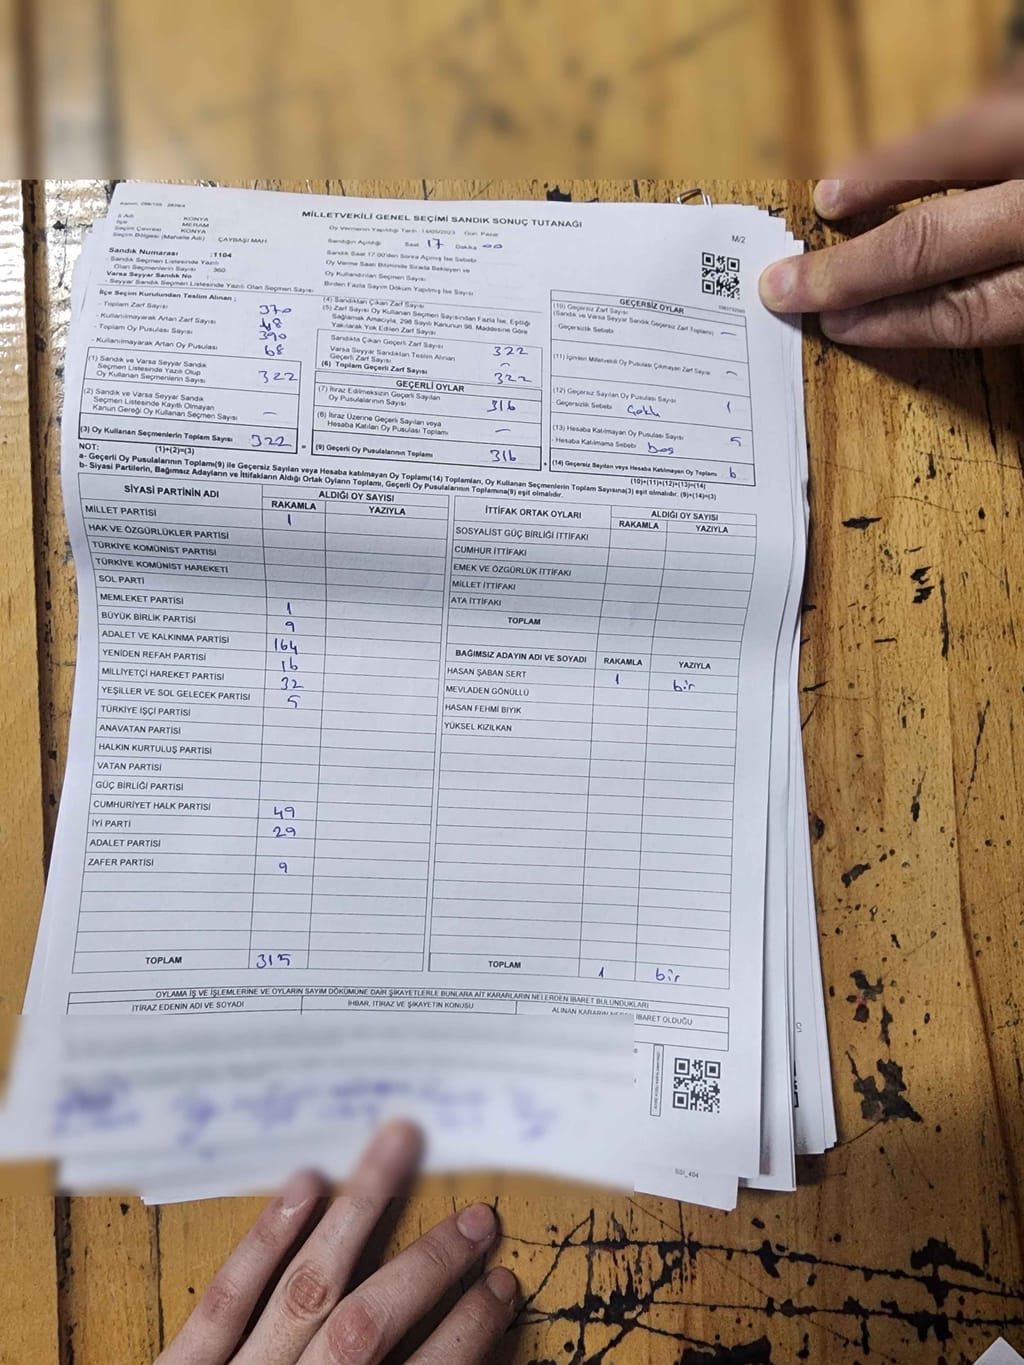 MİLLETVEKİLİ GENEL SEÇİMİ SANDIK SONUÇ TUTANAĞI
M/2
İl Adı KONYA
İlçe MERAM
Seçim Çevresi KONYA
Seçim Bölgesi (Mahalle Adı) ÇAYBAŞI MAH
Oy Vermenin Yapıldığı Tarih 14/05/2023 Gün: Pazar
Sandığın Açıldığı Saat 17 Dakika 00
Sandık Saat 17:00'den Sonra Açılmış İse Sebebi
Oy Verme Saati Bitiminde Sırada Bekleyen ve
Oy Kullandırılan Seçmen Sayısı
Birden Fazla Sayım Döküm Yapılmış İse Sayısı
Sandık Numarası :1104
- Sandık Seçmen Listesinde Yazılı
Olan Seçmenlerin Sayısı : 360
Varsa Seyyar Sandık No :
- Seyyar Sandık Seçmen Listesinde Yazılı Olan Seçmen Sayısı
İlçe Seçim Kurulundan Teslim Alınan ;
- Toplam Zarf Sayısı 370
- Kullanılmayarak Artan Zarf Sayısı 48
- Toplam Oy Pusulası Sayısı 390
- Kullanılmayarak Artan Oy Pusulası 68
(1) Sandık ve Varsa Seyyar Sandık
Seçmen Listesinde Yazılı Olup
Oy Kullanan Seçmenlerin Sayısı 322
(2) Sandık ve Varsa Seyyar Sandık
Seçmen Listesinde Kayıtlı Olmayan
Kanun Gereği Oy Kullanan Seçmen Sayısı –
(3) Oy Kullanan Seçmenlerin Toplam Sayısı 322
(4) Sandıktan Çıkan Zarf Sayısı
(5) Zarf Sayısı Oy Kullanan Seçmen Sayısından Fazla İse, Eşitliği
Sağlamak Amacıyla, 298 Sayılı Kanunun 98. Maddesine Göre
Yakılarak Yok Edilen Zarf Sayısı
Sandıkta Çıkan Geçerli Zarf Sayısı 322
Varsa Seyyar Sandıktan Teslim Alınan
Geçerli Zarf Sayısı –
(6) Toplam Geçerli Zarf Sayısı 322
GEÇERLİ OYLAR
(7) İtiraz Edilmeksizin Geçerli Sayılan
Oy Pusulalarının Sayısı 316
(8) İtiraz Üzerine Geçerli Sayılan veya
Hesaba Katılan Oy Pusulası Toplamı –
(9) Geçerli Oy Pusulalarının Toplamı 316
GEÇERSİZ OYLAR
(10) Geçersiz Zarf Sayısı
(Sandık ve Varsa Seyyar Sandık Geçersiz Zarf Toplamı) –
Geçersizlik Sebebi
(11) İçinden Milletvekili Oy Pusulası Çıkmayan Zarf Sayısı –
(12) Geçersiz Sayılan Oy Pusulası Sayısı 1
- Geçersizlik Sebebi Çoklu
(13) Hesaba Katılmayan Oy Pusulası Sayısı 5
- Hesaba Katılmama Sebebi boş
(14) Geçersiz Sayılan veya Hesaba Katılmayan Oy Toplamı 6
NOT: (1)+(2)=(3) (10)+(11)+(12)+(13)=(14)
a- Geçerli Oy Pusulalarının Toplamı(9) ile Geçersiz Sayılan veya Hesaba katılmayan Oy Toplamı(14) Toplamları, Oy Kullanan Seçmenlerin Toplam Sayısına(3) eşit olmalıdır. (9)+(14)=(3)
b- Siyasi Partilerin, Bağımsız Adayların ve İttifakların Aldığı Ortak Oyların Toplamı, Geçerli Oy Pusulalarının Toplamına(9) eşit olmalıdır.
SİYASİ PARTİNİN ADI ALDIĞI OY SAYISI
RAKAMLA YAZIYLA
MİLLET PARTİSİ 1
HAK VE ÖZGÜRLÜKLER PARTİSİ
TÜRKİYE KOMÜNİST PARTİSİ
TÜRKİYE KOMÜNİST HAREKETİ
SOL PARTİ
MEMLEKET PARTİSİ 1
BÜYÜK BİRLİK PARTİSİ 9
ADALET VE KALKINMA PARTİSİ 164
YENİDEN REFAH PARTİSİ 16
MİLLİYETÇİ HAREKET PARTİSİ 32
YEŞİLLER VE SOL GELECEK PARTİSİ 5
TÜRKİYE İŞÇİ PARTİSİ
ANAVATAN PARTİSİ
HALKIN KURTULUŞ PARTİSİ
VATAN PARTİSİ
GÜÇ BİRLİĞİ PARTİSİ
CUMHURİYET HALK PARTİSİ 49
İYİ PARTİ 29
ADALET PARTİSİ
ZAFER PARTİSİ 9
TOPLAM 315
İTTİFAK ORTAK OYLARI ALDIĞI OY SAYISI
RAKAMLA YAZIYLA
SOSYALİST GÜÇ BİRLİĞİ İTTİFAKI
CUMHUR İTTİFAKI
EMEK VE ÖZGÜRLÜK İTTİFAKI
MİLLET İTTİFAKI
ATA İTTİFAKI
TOPLAM
BAĞIMSIZ ADAYIN ADI VE SOYADI RAKAMLA YAZIYLA
HASAN ŞABAN SERT 1 bir
MEVLADEN GÖNÜLLÜ
HASAN FEHMİ BIYIK
YÜKSEL KIZILKAN
TOPLAM 1 bir
OYLAMA İŞ VE İŞLEMLERİNE VE OYLARIN SAYIM DÖKÜMÜNE DAİR ŞİKAYETLERLE BUNLARA AİT KARARLARIN NELERDEN İBARET BULUNDUKLARI
İTİRAZ EDENİN ADI VE SOYADI İHBAR, İTİRAZ VE ŞİKAYETİN KONUSU ALINAN KARARIN İBARET OLDUĞU